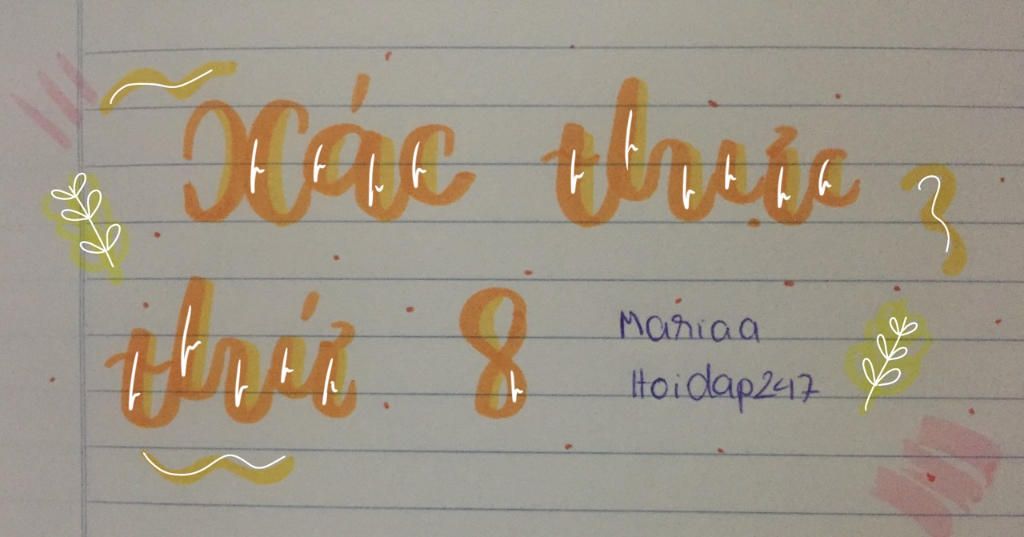 Xác thức
thứ 8
Mariaa
Hoidap247